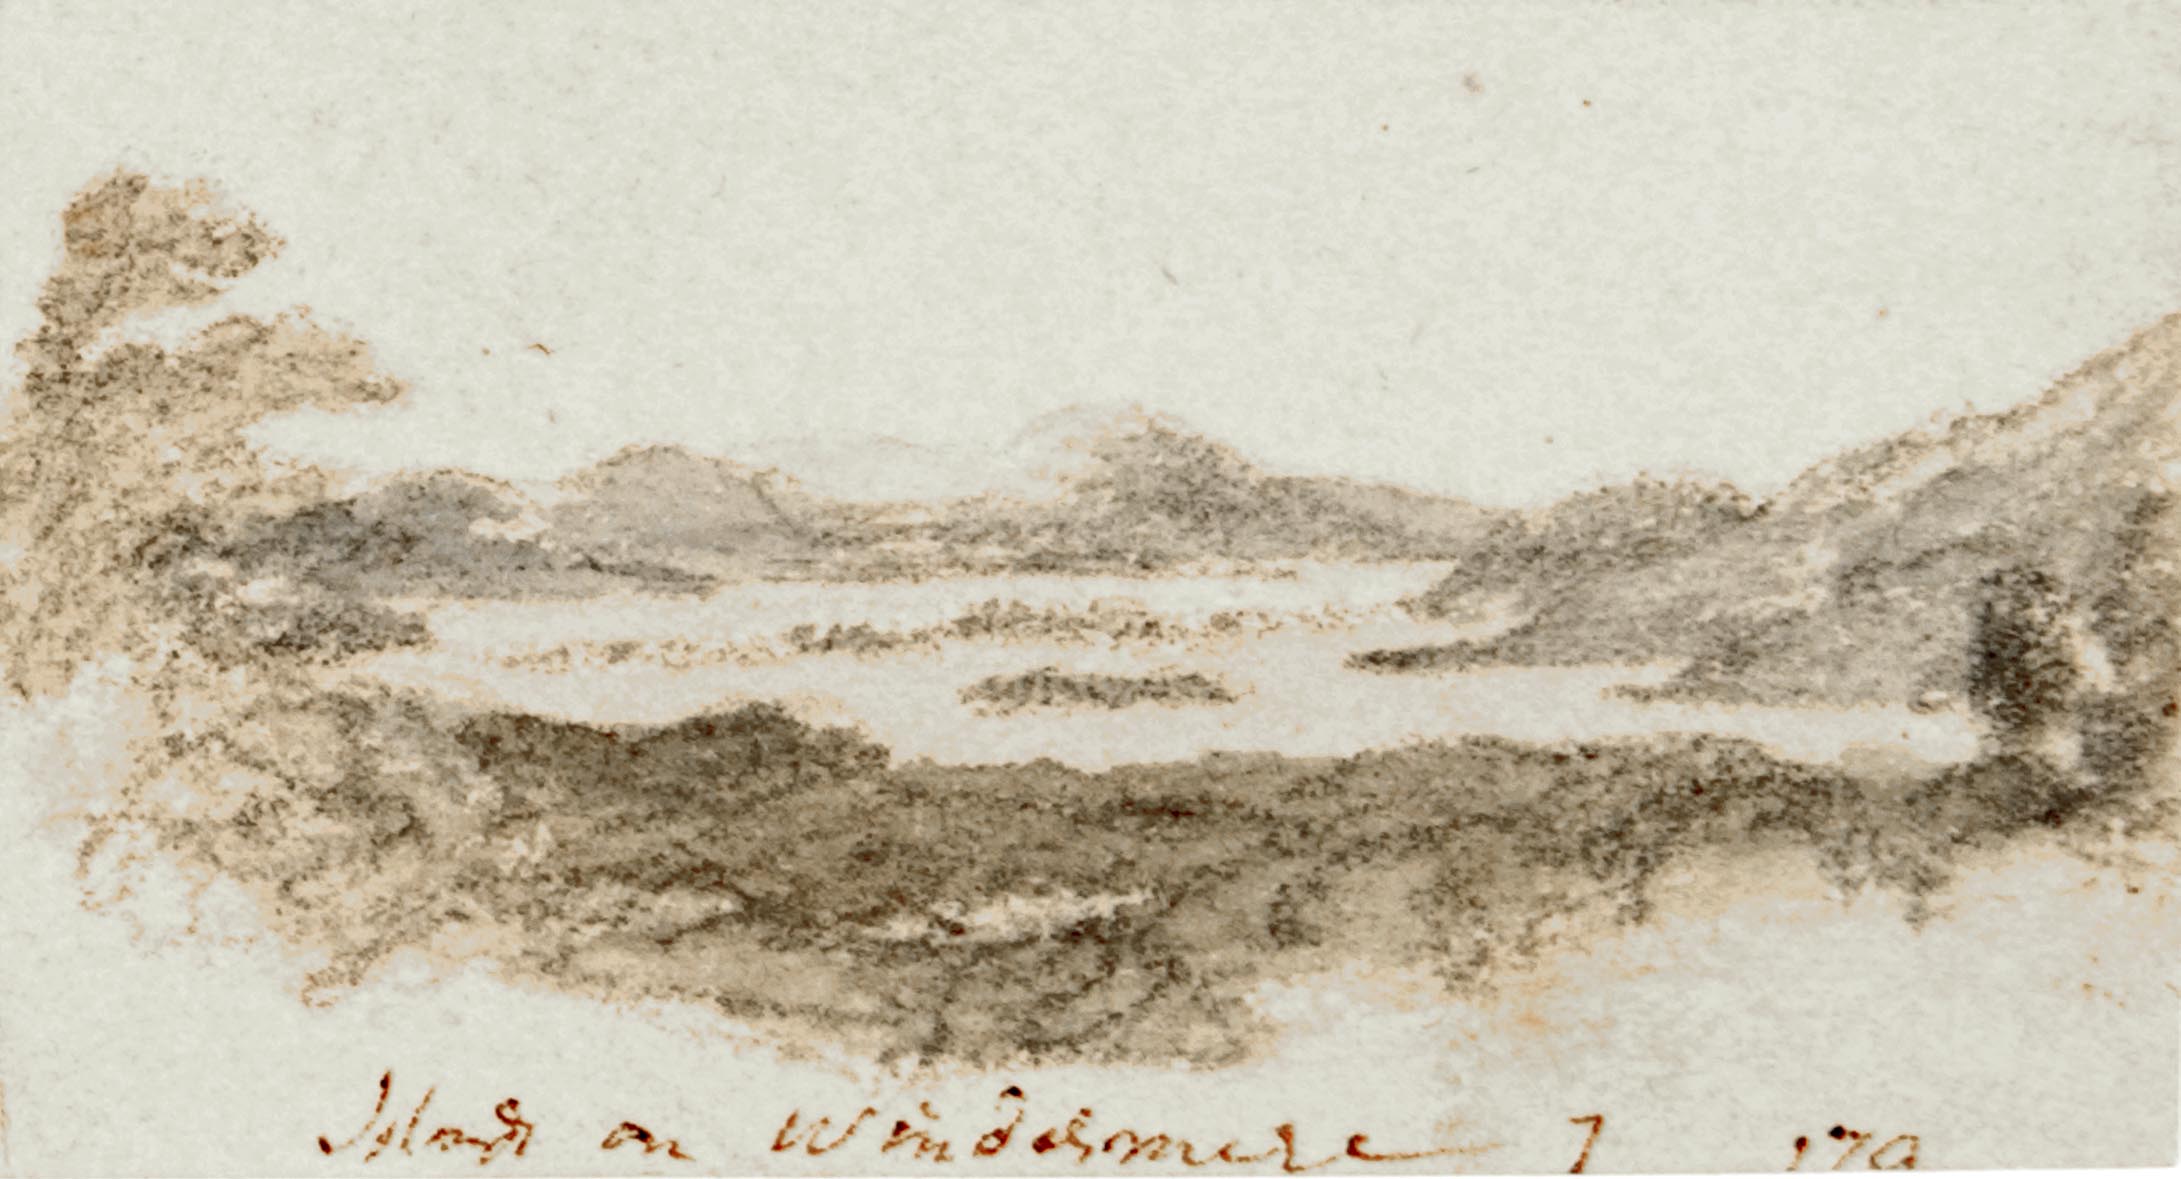 Islands on Windermere 7 179